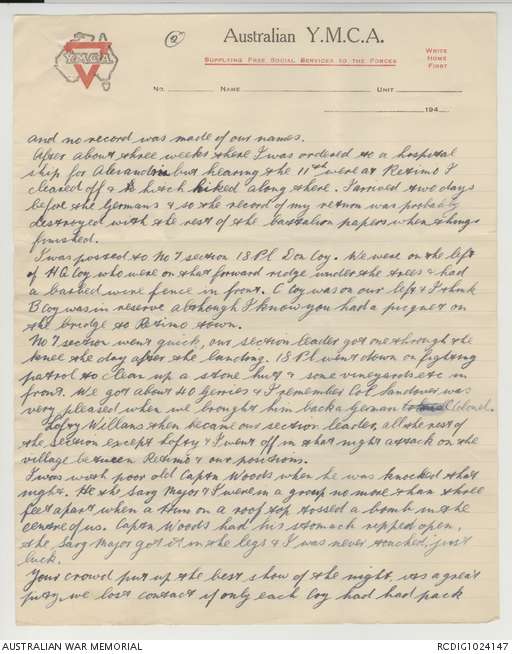 (2)
Y.M.C.A.
Australian Y.M.C.A.
SUPPLYING FREE SOCIAL SERVICES TO THE FORCES
WRITE
HOME
FIRST
No. NAME UNIT
194
and no record was made of our names.
After about three weeks there I was ordered to a hospital
ship for Alexandria but hearing the 11th were at Retimo I
cleared off & hitch hiked along there. I arrived two days
before the Germans & so the record of my return was probably
destroyed with the rest of the battalion papers when things
finished.
I was posted to No 7 section 18 Pl Don Coy. We were on the left
of H Q Coy who were on that forward ridge under the trees & had
a barbed wire fence in front. C Coy was on our left & I think
B Coy was in reserve although I know you had a picquet on
the bridge to Retimo town.
No 7 section went quick, our section leader got one through the
knee the day after the landing. 18 Pl went down on fighting
patrol to clean up a stone hut & some vineyards etc in
front. We got about 40 Gerries & I remember Col Sandover was
very pleased when we brought him back a German Colonel.
Lofty Willans then became our section leader, all the rest of
the section except Lofty & I went off in that night attack on the
village between Retimo & our positions.
I was with poor old Captn Woods when he was knocked that
night. He the Sarg Major & I were in a group no more than three
feet apart when a Hun on a roof top tossed a bomb in the
centre of us. Captn Woods had his stomach ripped open,
the Sarg Major got it in the legs & I was never touched; just
luck.
Your crowd put up the best show of the night, was a great
pity we lost contact if only each Coy had had pack
AUSTRALIAN WAR MEMORIAL
RCDIG1024147